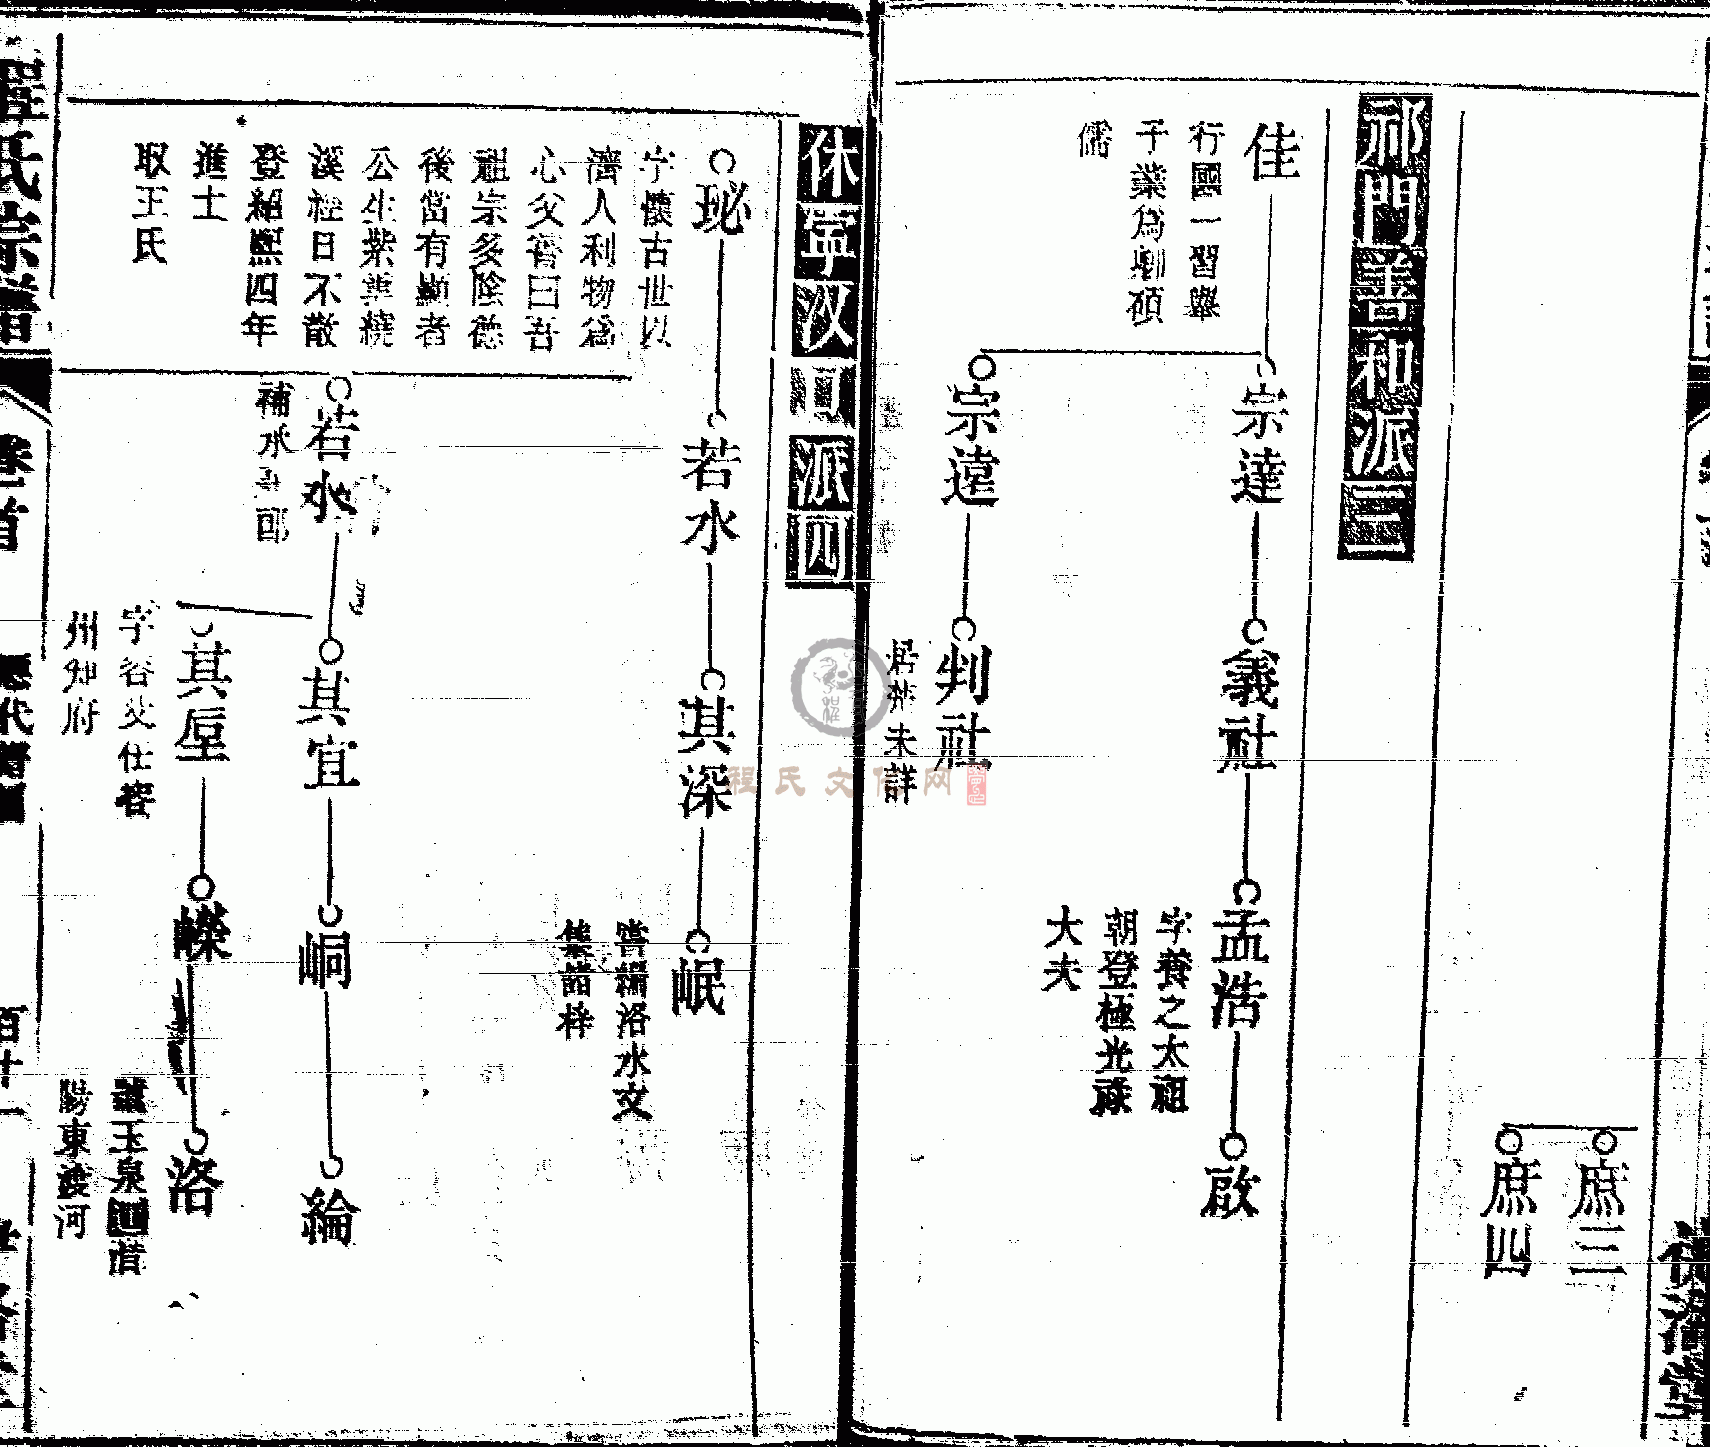 庶三
庶四
祁門善和派三
佳
行國一習舉
子業爲郷碩
儒
宗達
義社
孟浩
字養之太祖
朝登極光祿
大夫
啟
宗遠
判社
居業未詳
休寧汊口派四
珌
字懷古世以
濟人利物爲
心父嘗曰吾
祖宗多陰德
後當有顯者
公生紫雲繞
溪經日不散
登紹熙四年
進士
取王氏
若水
其深
岷
嘗編洛水文
集諸梓
若水
補承部
其宜
峒
綸
其垕
字容
仕容
州知府
嶸
洛
玉泉
陽東渡河
程氏宗譜
卷首
歷代
百廿一
程氏文化网